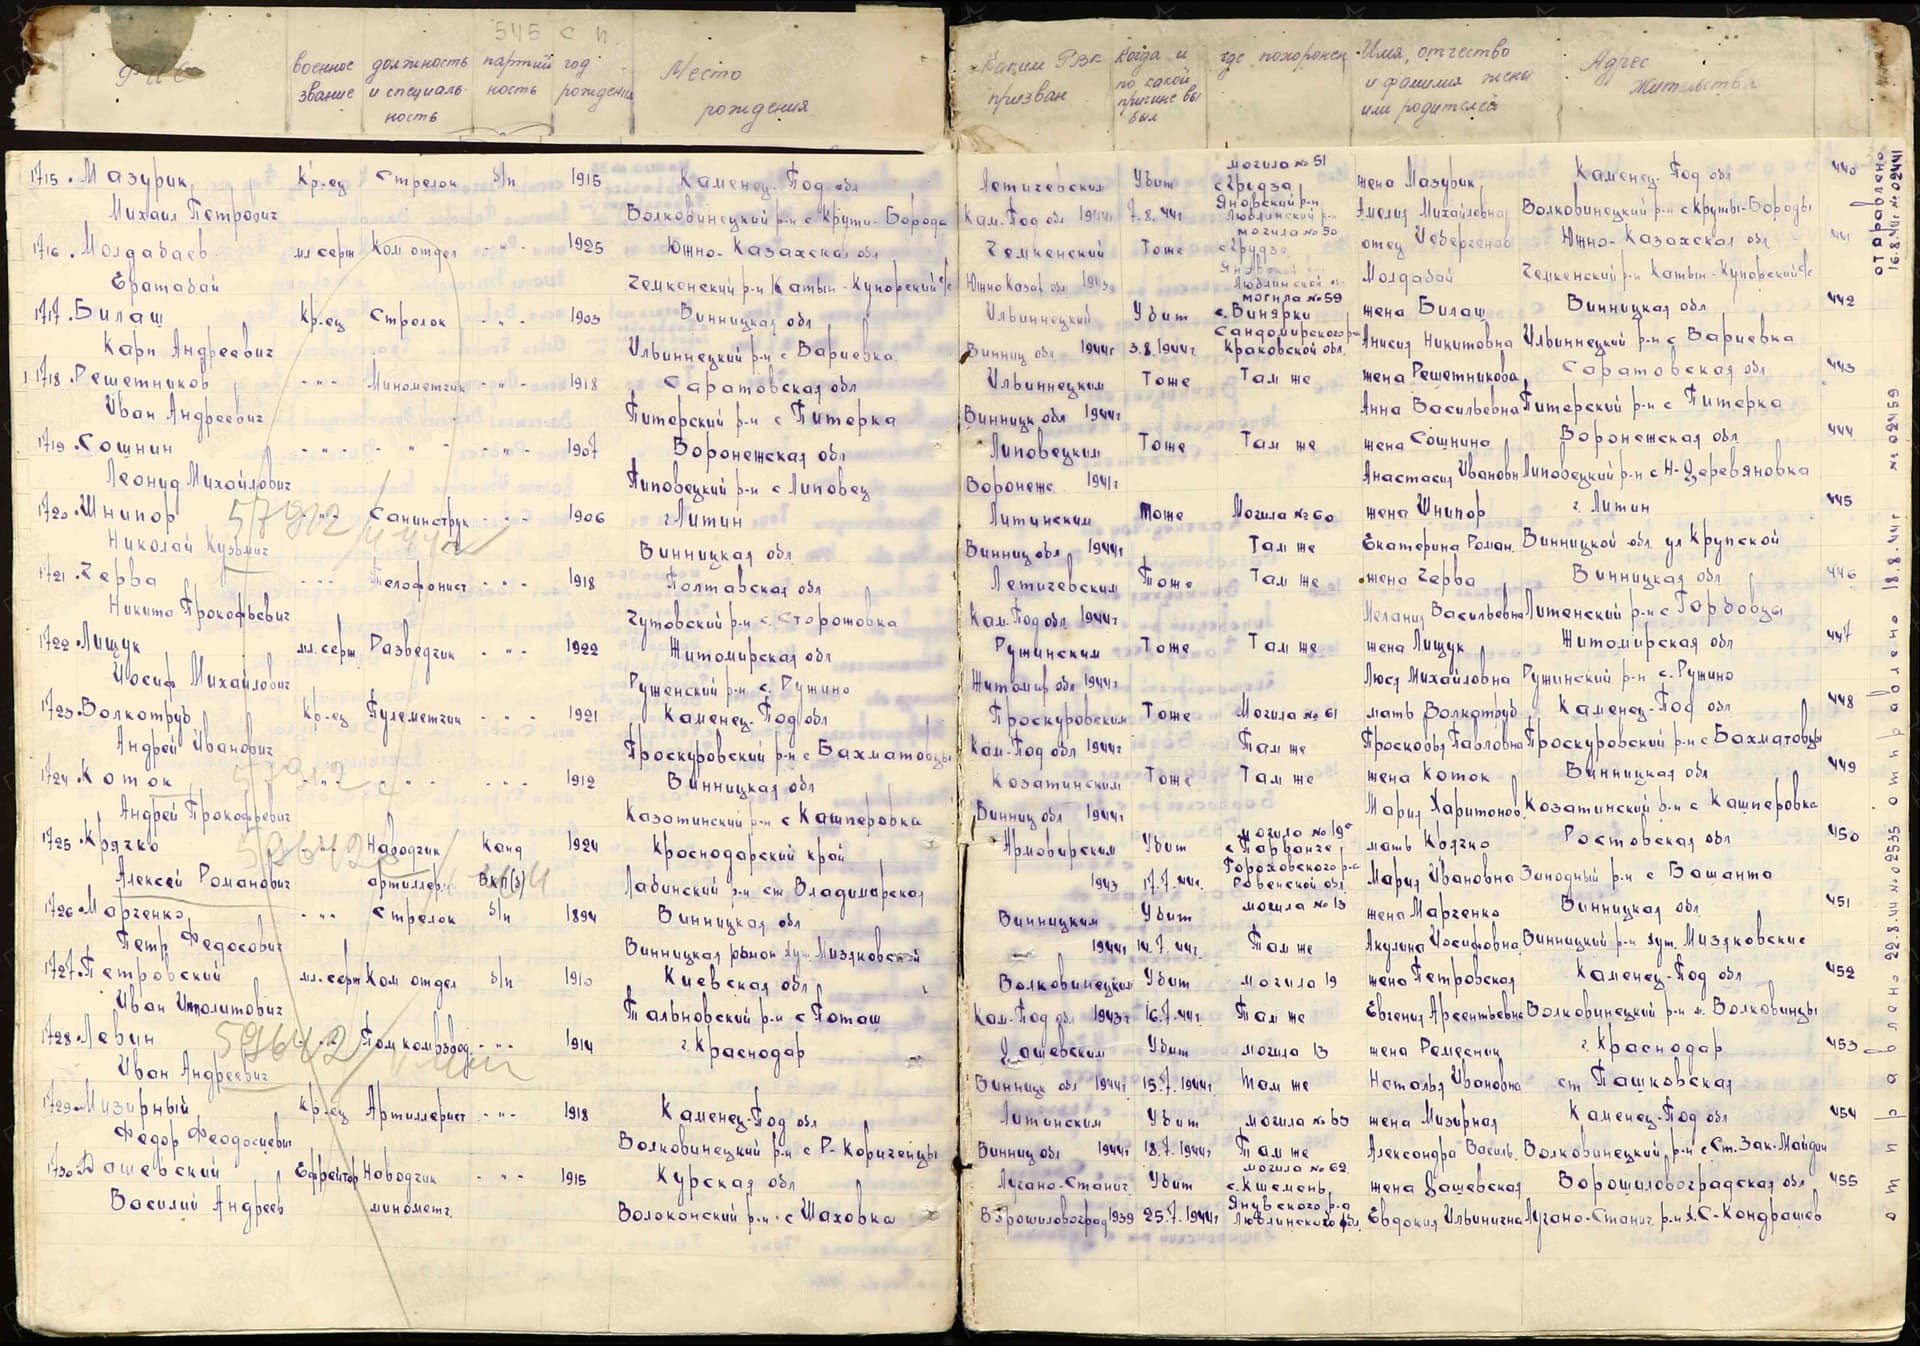 545 с п.
военное должность партий год Место
звание и специаль- ность рождения рождения
ность
Каким РВК Когда и где похоронен Имя, отчество Адрес
призван по какой и фамилия жены жительства
причине вы или родителей
был
1715. Мазурик Кр-ец Стрелок б/п 1915 Каменец-Под обл
Михаил Петрович Волковинецкий р-н с Крути-Борода
1716. Молдабаев мл серж Ком отдел -"- 1925 Южно-Казахская обл
Ератабай Чемкенский р-н Катын-Купорский с/с
1717. Билаш Кр-ец Стрелок -"- 1903 Винницкая обл
Карп Андреевич Ильиннецкий р-н с Вариевка
1718. Решетников -"- Минометчик -"- 1918 Саратовская обл
Иван Андреевич Питерский р-н с Питерка
1719. Сошнин -"- -"- -"- 1907 Воронежская обл
Леонид Михайлович Липовецкий р-н с Липовец
1720. Шнипор -"- Санинструк -"- 1906 г Литин
Николай Кузьмич Винницкая обл
57912
1721. Черва -"- Телефонист -"- 1918 Полтавская обл
Никита Прокофьевич Чутовский р-н с. Сторожовка
1722. Лищук мл.серж Разведчик -"- 1922 Житомирская обл
Иосиф Михайлович Руженский р-н с. Ружино
1723. Волкотруб Кр-ец Пулеметчик -"- 1921 Каменец-Под обл
Андрей Иванович Проскуровский р-н с Бахматовцы
1724. Коток -"- -"- -"- 1912 Винницкая обл
Андрей Прокофревич Казатинский р-н с Кашперовка
57912
1725. Крячко -"- Наводчик Канд 1924 Краснодарский край
Алексей Романович артиллер. ВКП(б) Лабинский р-н ст. Владимирская
1726. Марченко -"- Стрелок б/п 1894 Винницкая обл
Петр Федосович Винницкая район хут. Мизяковский
1727. Петровский мл.серж Ком отдел б/п 1910 Киевская обл
Иван Иполитович Тальновский р-н с Поташ
1728. Левин -"- Пом комвзвод -"- 1914 г. Краснодар
Иван Андреевич
59642
1729. Мизирный Кр-ец Артиллерист -"- 1918 Каменец-Под обл
Федор Феодосиевич Волковинецкий р-н с Р-Коричинцы
1730. Дашевский Ефрейтор Наводчик -"- 1915 Курская обл
Василий Андреев минометч. Волоконский р-н с Шаховка
Летичевским Убит могила № 51 жена Мазурик Каменец-Под обл 440
с Грудза
Кам-Под обл 1944г 7.8.44г Яновский р-н Амелия Михайловна Волковинецкий р-н с Круты-Бороды
Люблинской р-н
Чемкенский Тоже могила № 50 отец Изберченов Южно-Казахская обл 441
с Грудзе
Южно Казах обл Люблинской Молдабай Чемкенский р-н Катын-Купорский с/с
Ильиннецкий Убит могила № 59 жена Билаш Винницкая обл 442
с. Винярки
Винниц обл 1944г 3.8.1944г Сандомирского р-на Анисия Никитовна Ильиннецкий р-н с Вариевка
Краковской обл.
Ильиннецким Тоже Там же жена Решетникова Саратовская обл 443
Винницк обл 1944г Анна Васильевна Питерский р-н с Питерка
Липовецким Тоже Там же жена Сошнино Воронежская обл 444
Воронежс 1941г Анастасия Ивановн Липовецкий р-н с Н-Деревяновка
Литинским Тоже Могила № 60 жена Шнипор г. Литин 445
Винниц обл 1944г Там же Екатерина Роман. Винницкой обл ул Крупской
Летичевским Тоже Там же жена Черва Винницкая обл 446
Кам-Под обл 1944г Мелания Васильевна Литенский р-н с Горбовцы
Ружинским Тоже Там же жена Лищук Житомирская обл 447
Житомир обл 1944г Люся Михайловна Ружинский р-н с. Ружино
Проскуровским Тоже Могила № 61 мать Волкотруб Каменец-Под обл 448
Кам-Под обл 1944г Там же Просковья Павловна Проскуровский р-н с Бахматовцы
Козатинским Тоже Там же жена Коток Винницкая обл 449
Винниц обл 1944г Мария Харитонов. Козатинский р-н с Кашперовка
Армовирским Убит могила № 19 мать Крячко Ростовская обл 450
1943 17.7.44г. Гороховского р-на Мария Ивановна Западный р-н с Башанта
Ровенской обл.
Винницким Убит могила № 13 жена Марченко Винницкая обл 451
1944г 14.7.44г. Там же Акулина Иосифовна Винницкий р-н хут. Мизяковские
Волковинецким Убит могила 19 жена Петровская Каменец-Под обл 452
Кам-Под обл 1943г 16.7.44г. Там же Евгения Арсентьевна Волковинецкий р-н м. Волковинцы
Дашевским Убит могила 13 жена Ремесниц г. Краснодар 453
Винницк обл 1944г 15.7.1944г. Там же Наталья Ивановна ст Пашковская
Литинским Убит могила № 63 жена Мизирная Каменец-Под обл 454
Винниц обл 1944г 18.7.1944г Там же Александра Василь. Волковинецкий р-н с Ст. Зак-Майдан
Лугано-Станич. Убит могила № 62 жена Дашевская Ворошиловоградская обл 455
с. Кшемень
Ворошиловоград 1939 25.7.1944г Янувского р-а Евдокия Ильинична Лугано-Станич. р-н х. С-Кондрашев
Люблинского обл.
отправлено 16.8.44г № 02441
отправлено 18.8.44г № 02459
отправлено 22.8.44 № 02535